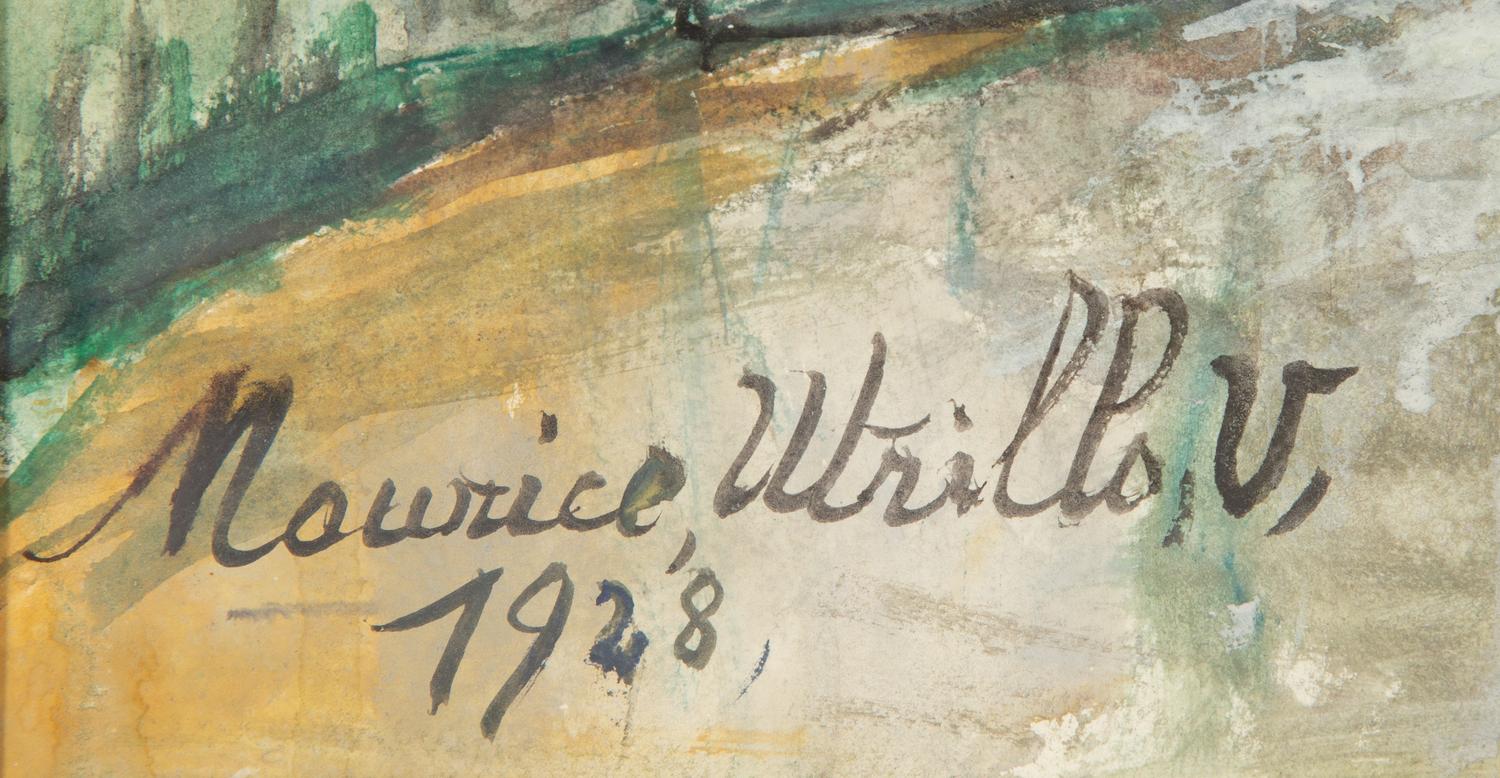 Maurice, Utrillo, V,
1928,